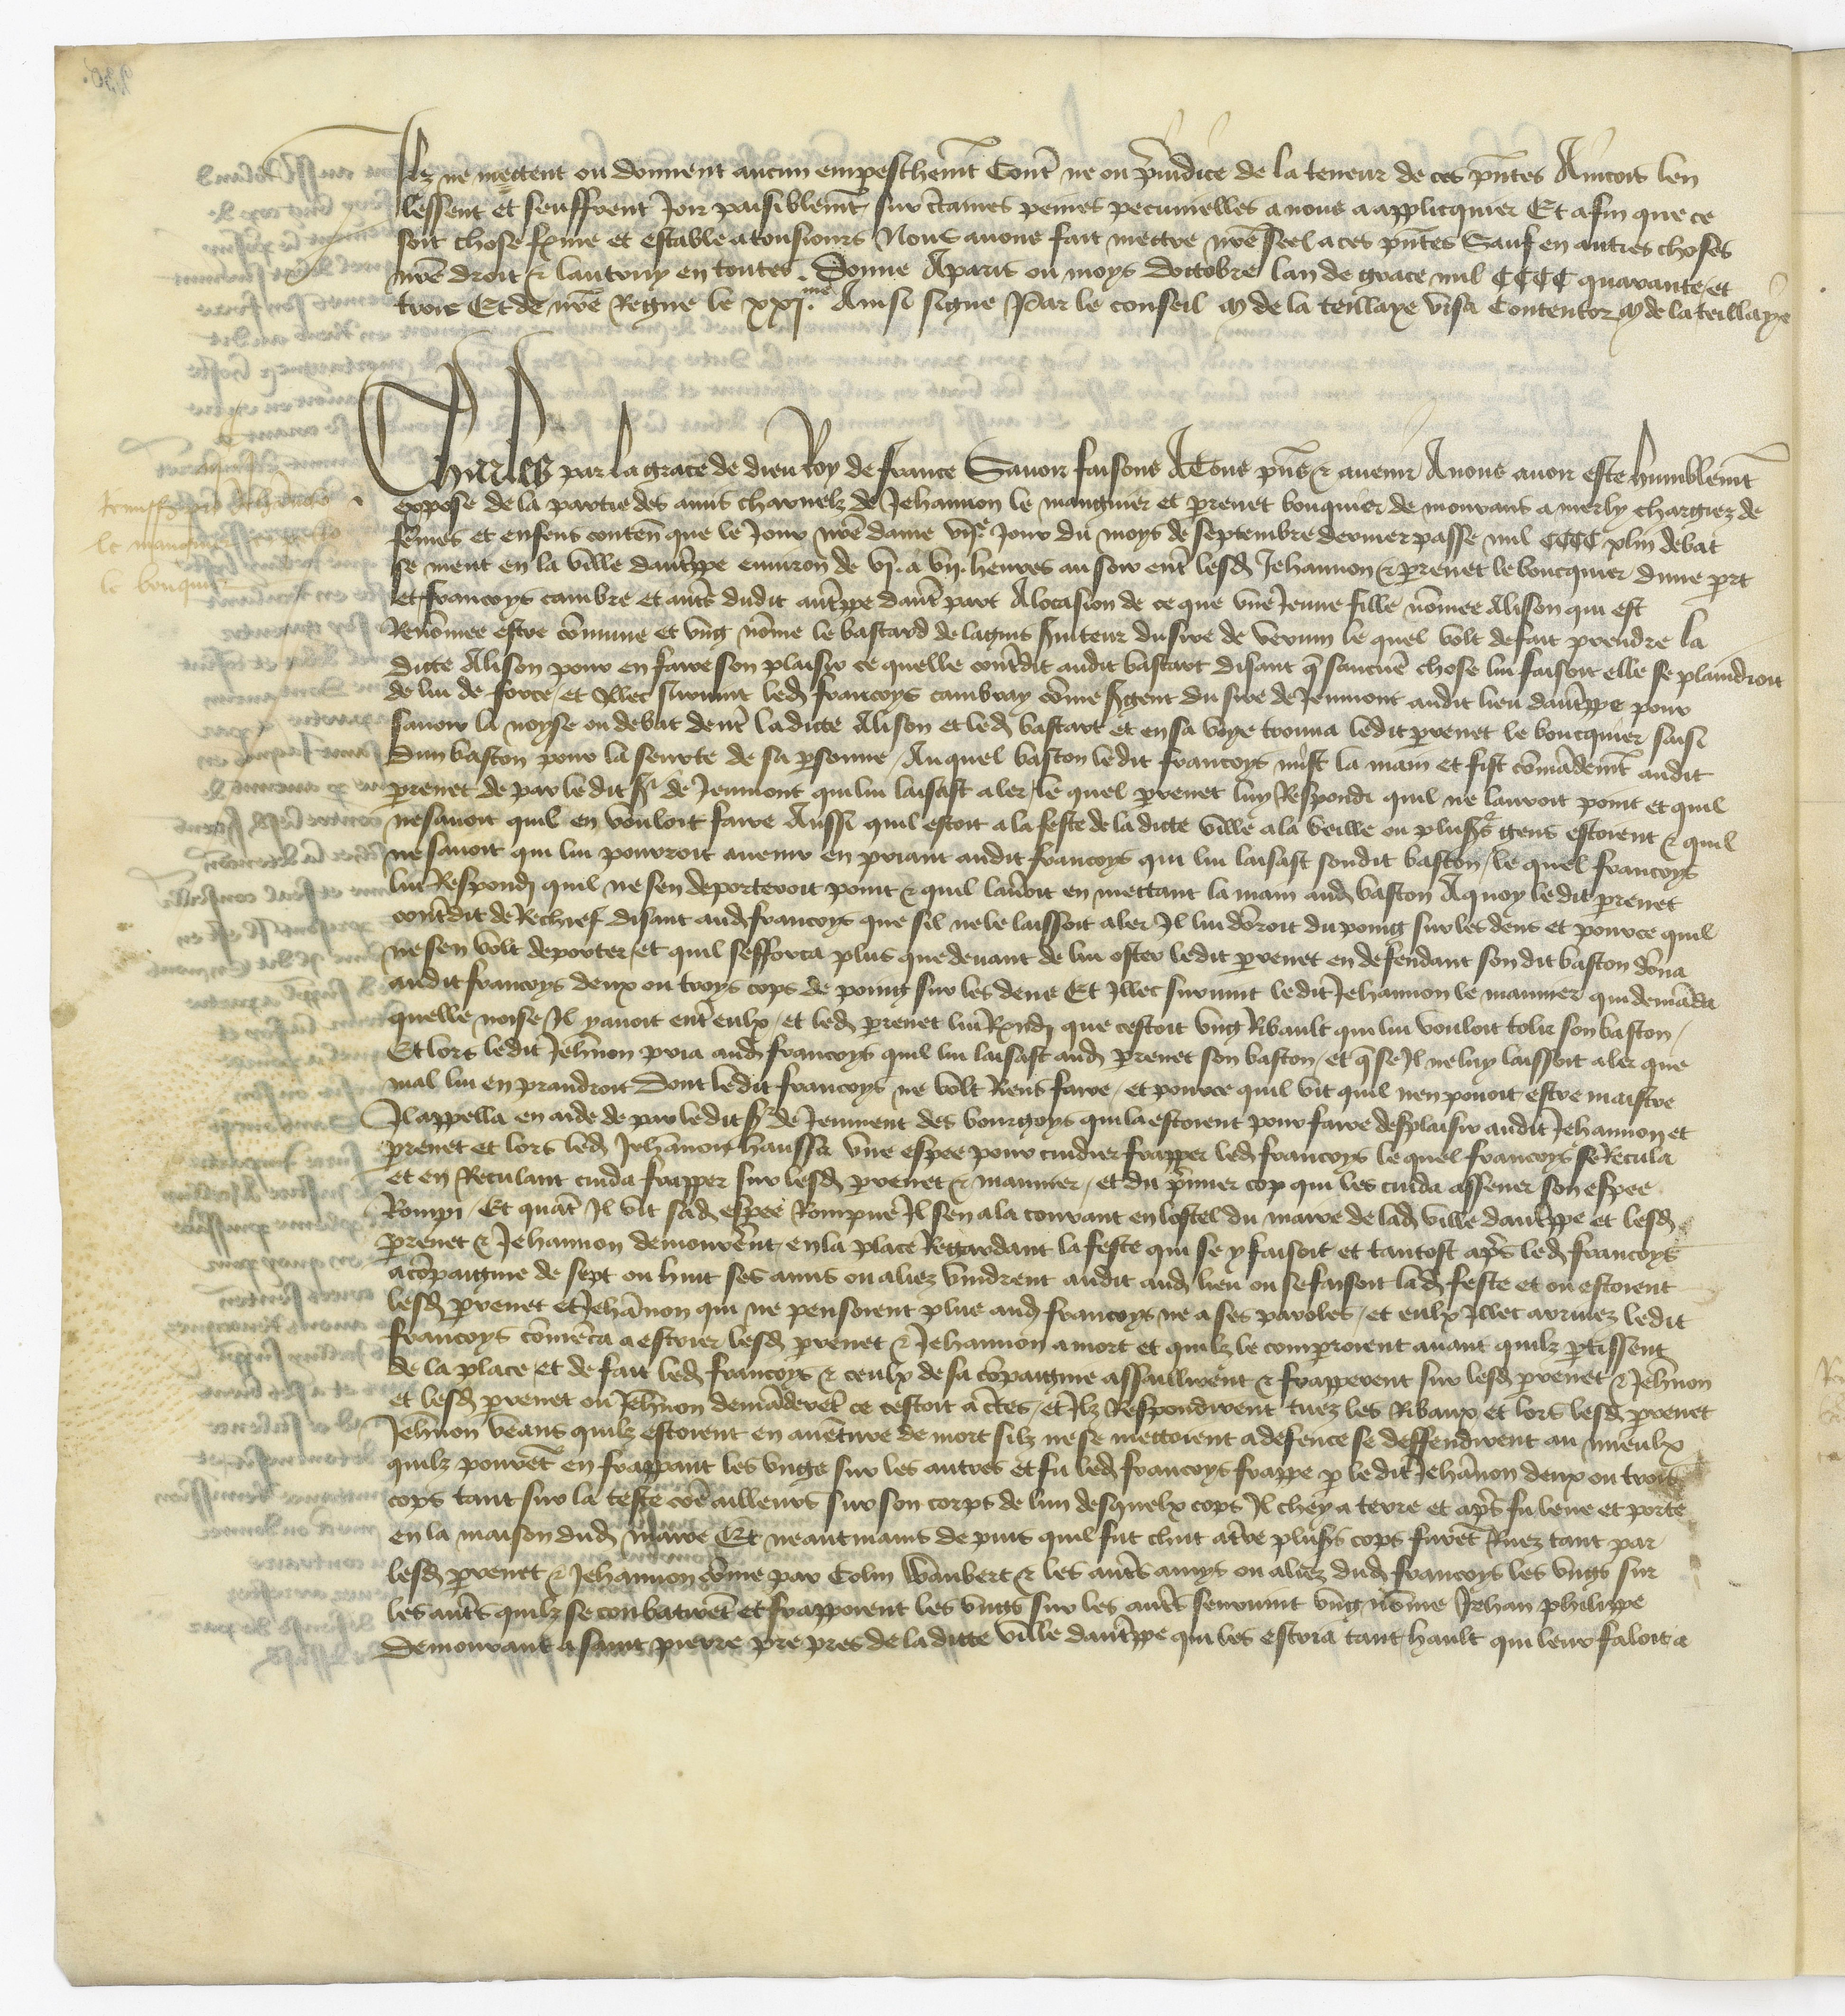 ilz ne mettent ou donnent aucun empeschem̃t Cont̃ ne ou p̃iudice de la teneur de ces pñtes Aincois len
lessent et seuffrent Joir paisiblem̃t sur c̃taines peines pecunielles a nous a applicquier Et afin que ce
soit chose ferme et estable a tousiours Nous auons fait mettre nr̃e seel a ces pñtes Sauf en autres choses
nr̃e droit & lautruy en toutes. Donne Aparis ou moys doctobre lan de grace mil CCCC quarante et
trois Et de nr̃e Regne le xxj.me Ainsi signe Par le conseil M de la teillaye visa Contentor M de la teillaye
Charles par la grace de dieu Roy de france Sauoir faisons A Tous pñs & auenir A nous auoir este humblem̃t
expose de la partie des amis charnelz de Jehannon le manguier et prenet bouquier demourans a merly chargiez de
fem̃es et enfens conten̄ que le Jour nr̃e dame viije Jour du moys de septembre dernier passe mil CCCC xliij debat
se meut en la ville daut̃ppe enuiron de vj. a vij. heures au soir ent̃ lesd Jehannon & prenet le boucquier dune p̃t
et francoys cambre et aut̃s dudit aut̃ppe daut̃ part A locasion de ce que vne Jeune fille nõmee Alison qui est
Renõmee estre cõmune et vng nõme le bastard de lagnis suiteur du sire de verum le quel volt de fait prendre la
dicte Alison pour en faire son plaisir ce quelle cont̃dit audit bastart disant q̃ saucune chose lui faisoit elle se plaindroit
de lui de force et Illec suruint led francoys cambray cõme sergent du sire de Jeumont audit lieu daut̃ppe pour
sauoir la noyse ou debat dent̃ ladicte Alison et led bastart et en sa voye trouua ledit prenet le boucquier saisi
dun baston pour la seurte de sa p̃sonne / Au quel baston ledit francoys mist la main et fist cõmãdem̃t audit
prenet de par ledit sr de Jeumont qui lui laisast aler / le quel prenet luy Respondi quil ne lauroit point et quil
ne sauoit quil en vouloit faire Aussi quil estoit a la feste de la dicte ville a la veille ou plus̃rs gens estoient & quil
ne sauoit qui lui pourroit auenir en priant audit francoys qui lui laisast sondit baston / le quel francoys
lui Respondi quil ne sen deporteroit point & quil lauroit en mettant la main aud baston A quoy ledit prenet
cont̃dit de Rechief disant aud francoys que sil ne le laissoit aler Il lui dõroit du poing sur les dens et pource quil
ne sen volt deporter / et quil sefforca plus que deuant de lui oster ledit prenet en defendant sondit baston dõna
audit francoys deux ou troys cops de poing sur les dens Et Illec suruint ledit Jehannon le mannier qui demãda
quelle noise Il y auoit ent̃ eulx / et led prenet lui Rp̃ndi que cestoit vng Ribault qui lui vouloit tolir son baston /
Et lors ledit Jehñon pria aud francoys quil lui laisast aud prenet son baston / et q̃ se Il ne luy laissoit aler que
mal lui en prandroit Dont ledit francoys ne volt Riens faire / et pource quil vit quil nen pouoit estre maistre
Il appella en aide de par ledit sr de Jeument des bourgoys qui la estoient pour faire desplaisir audit Jehannon et
prenet et lors led Jehãnon haussa vne espee pour cuidier frapper led francoys le quel francoys se Recula
et en Reculant cuida frapper sur lesd prenet & mannier / et du p̃mier cop qui les cuida assener son espee
Rompi / Et quãt Il vit sad espee Rompue Il sen ala courant en lostel du maire de lad ville daut̃ppe et lesd
prenet & Jehannon demourer̃t en la place Regardant la feste qui se y faisoit et tantost ap̃s led francoys
acõpaignie de sept ou huit ses amis ou aliez vindrent audit aud lieu ou se faisoit lad feste et ou estoient
lesd prenet et Jehãnon qui ne pensoient plus aud francoys ne a ses paroles / et eulx Illec arriuez ledit
francoys cõmẽca a escrier lesd prenet & Jehannon a mort et quilz le comproient auant quilz p̃tissent
de la place / et de fait led francoys & ceulx de sa cõpaignie assaillirent & frapperent sur lesd prenet & Jehñon
et lesd prenet ou Jehñon demãderẽt ce cestoit a c̃tes / et Ilz Respondirent tuez les Ribaux / et lors lesd prenet
Jehñon veans quilz estoient en auẽture de mort silz ne se mettoient a defence se deffendirent au mieulx
quilz pourẽt en frappant les vngs sur les autres et fu led francoys frappe p ledit Jehãnon deux ou trois
cops tant sur la teste cõe ailleurs sur son corps de lun desquelx cops Il chey a terre et ap̃s fu leue et porte
en la maison dud maire Et neantmains de puis quil fut cheut a t̃re plus̃rs cops furẽt Ruez tant par
lesd prenet & Jehannon cõme par Colin Waubert & les aut̃s amys ou aliez dud francoys les vngs sur
les aut̃s quilz se conbatirẽt et frappoient les vngs sur les aut̃s seruuint vng nõme Jehan philippe
demourant a saint pierre pre pres de ladicte ville daut̃ppe qui les escria tant hault qui leur faloit a
le manguier
le bouquier